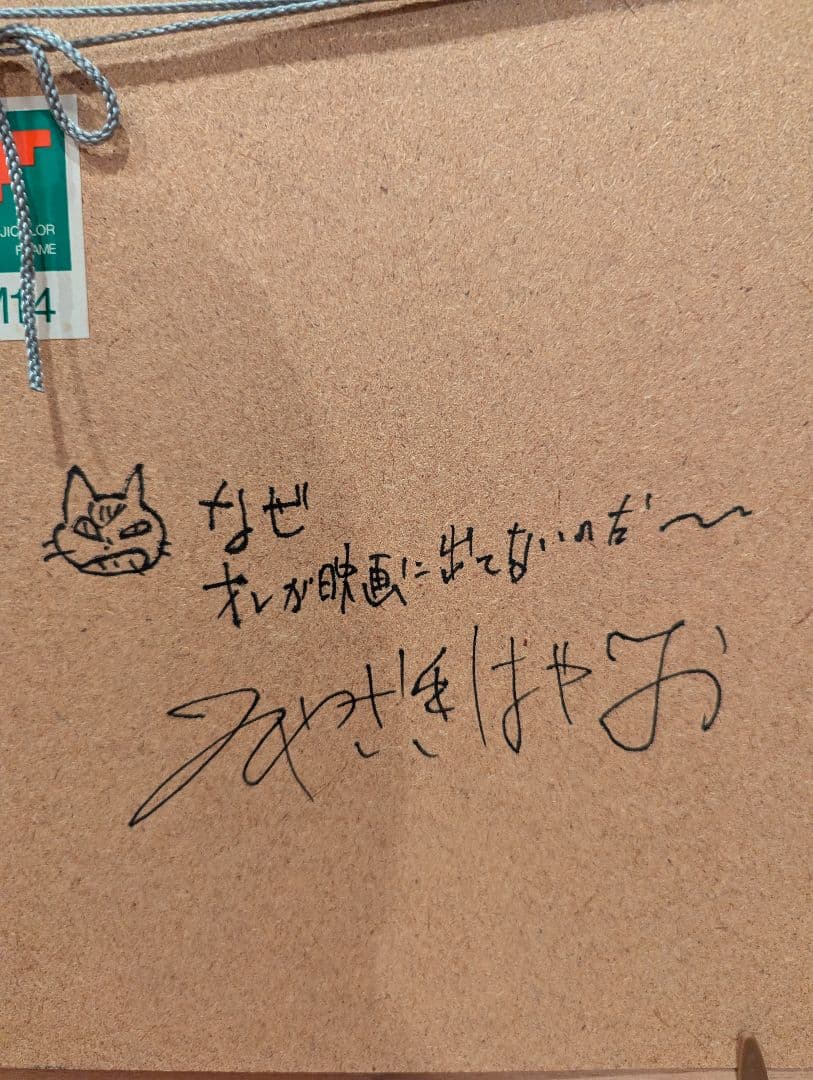 JICOLOR
FRAME
M14
なぜ
オレが映画に出てないのだ〜〜
みやざきはやお